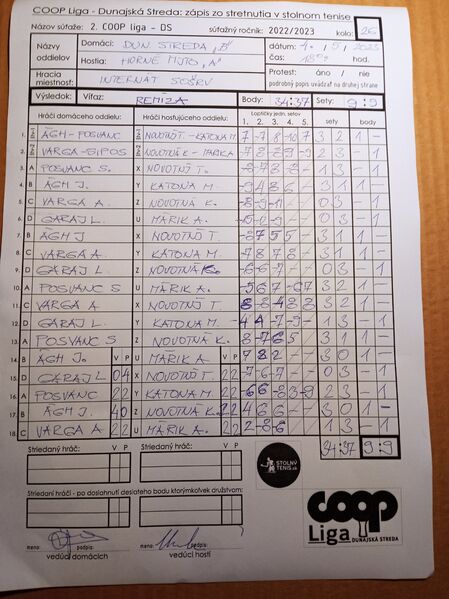 COOP Liga - Dunajská Streda: zápis zo stretnutia v stolnom tenise
Názov súťaže: 2. COOP liga - DS súťažný ročník: 2022/2023 kolo: 26
Názvy oddielov Domáci: DUN. STREDA „B" dátum: 5. 2023
Hostia: HORNÉ MÝTO „A" čas: 18
Hracia miestnosť: INTERNÁT SOŠRV Protest: áno / nie
podrobný popis uvádzať na druhej strane
Výsledok: Víťaz: REMÍZA Body: 34:37 Sety: 9:9
Hráči domáceho oddielu Hráči hosťujúceho oddielu Loptičky jedn. setov sety body
1. 2. 3. 4. 5.
1. ÁGH - POSVANC NOVOTNÝ T. - KATONA M. 3 2 1 -
2. VARGA - SIPOS NOVOTNÁ K. - MÁRIK A. 2 3 - 1
3. A POSVANC S. X NOVOTNÝ T. 1 3 - 1
4. B ÁGH J. Y KATONA M. -9 4 8 6 3 1 1 -
5. C VARGA A. Z NOVOTNÁ K. -8 -9 -11 0 3 - 1
6. D GARAJ L. U MÁRIK A. 0 3 - 1
7. B ÁGH J X NOVOTNÝ T. -8 7 5 5 3 1 1 -
8. C VARGA A. Y KATONA M. -7 8 7 8 3 1 1 -
9. D GARAJ L. Z NOVOTNÁ K. -6 -6 -7 0 3 - 1
10. A POSVANC S U MÁRIK A. 3 2 1 -
11. C VARGA A. X NOVOTNÝ T. 3 2 1 -
12. D GARAJ L. Y KATONA M. 1 3 - 1
13. A POSVANC S Z NOVOTNÁ K. 3 1 1 -
14. B ÁGH J. V P U MÁRIK A. V P 7 8 2 3 0 1 -
15. D GARAJ L 0 4 X NOVOTNÝ T. 2 2 1 3 - 1
16. A POSVANC 2 2 Y KATONA M. 2 2 2 3 - 1
17. B ÁGH J. 4 0 Z NOVOTNÁ K. 2 2 4 6 6 3 0 1 -
18. C VARGA A 2 2 U MÁRIK A. 2 2 1 3 - 1
Striedaný hráč: Striedaný hráč: 34:37 9:9
STOLNÝ TENIS.sk
Striedaní hráči - po dosiahnutí desiateho bodu ktorýmkoľvek družstvom:
coop
Liga DUNAJSKÁ STREDA
meno: podpis: meno: podpis:
vedúci domácich vedúci hostí